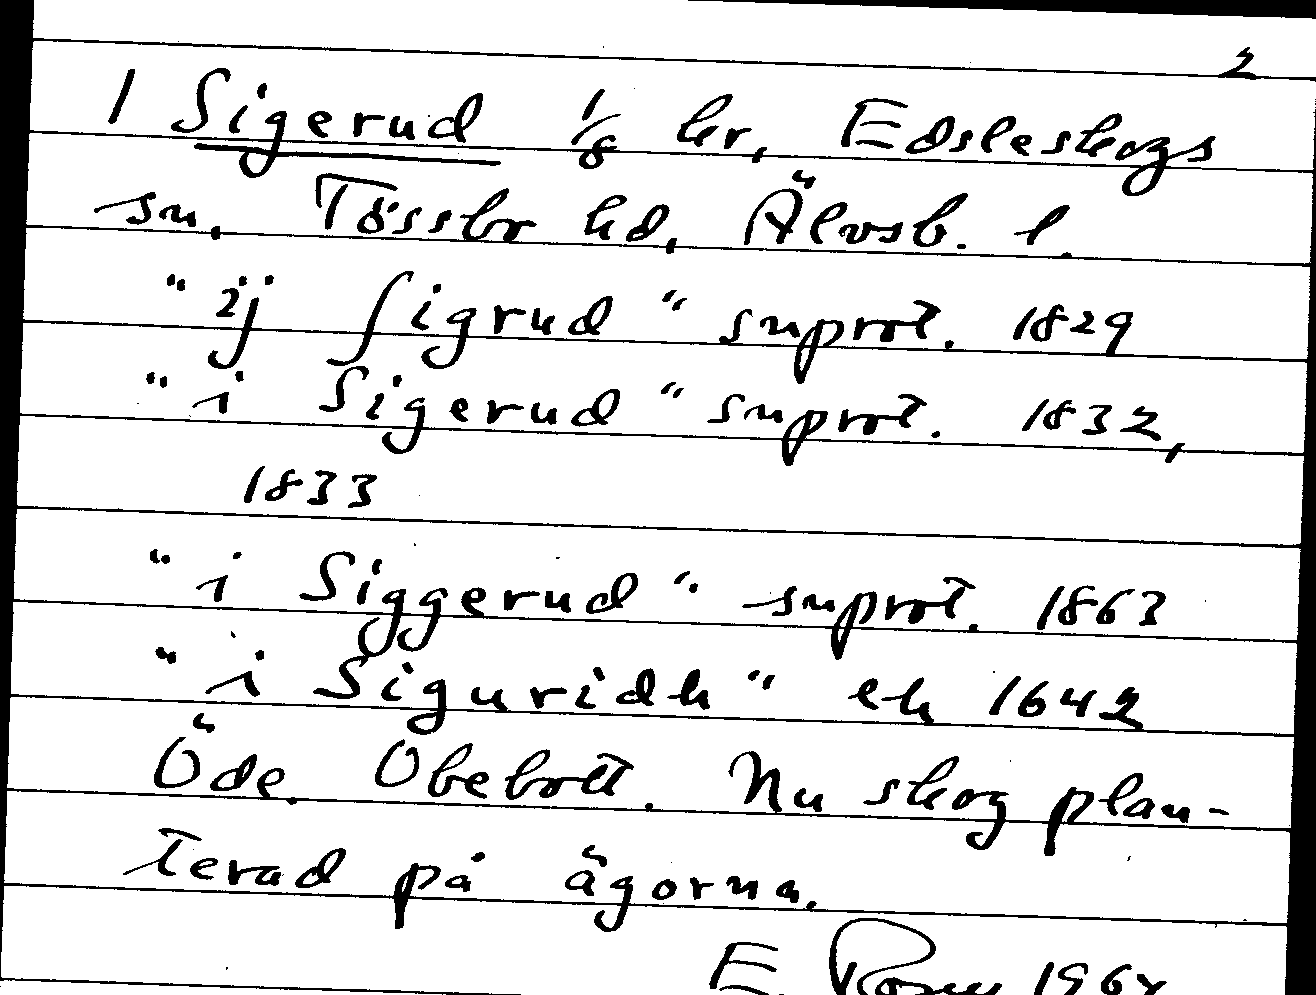 2
1 Sigerud 1/8 hr, Edsleskogs
sn, Tössbo hd, Älvsb. l.
"ij Sigrud" snprot. 1829
"i Sigerud" snprot. 1832,
1833
"i Siggerud" snprot. 1863
"i Siguridh" ek 1642
Öde. Obebott. Nu skog plan-
terad på ägorna.
E.